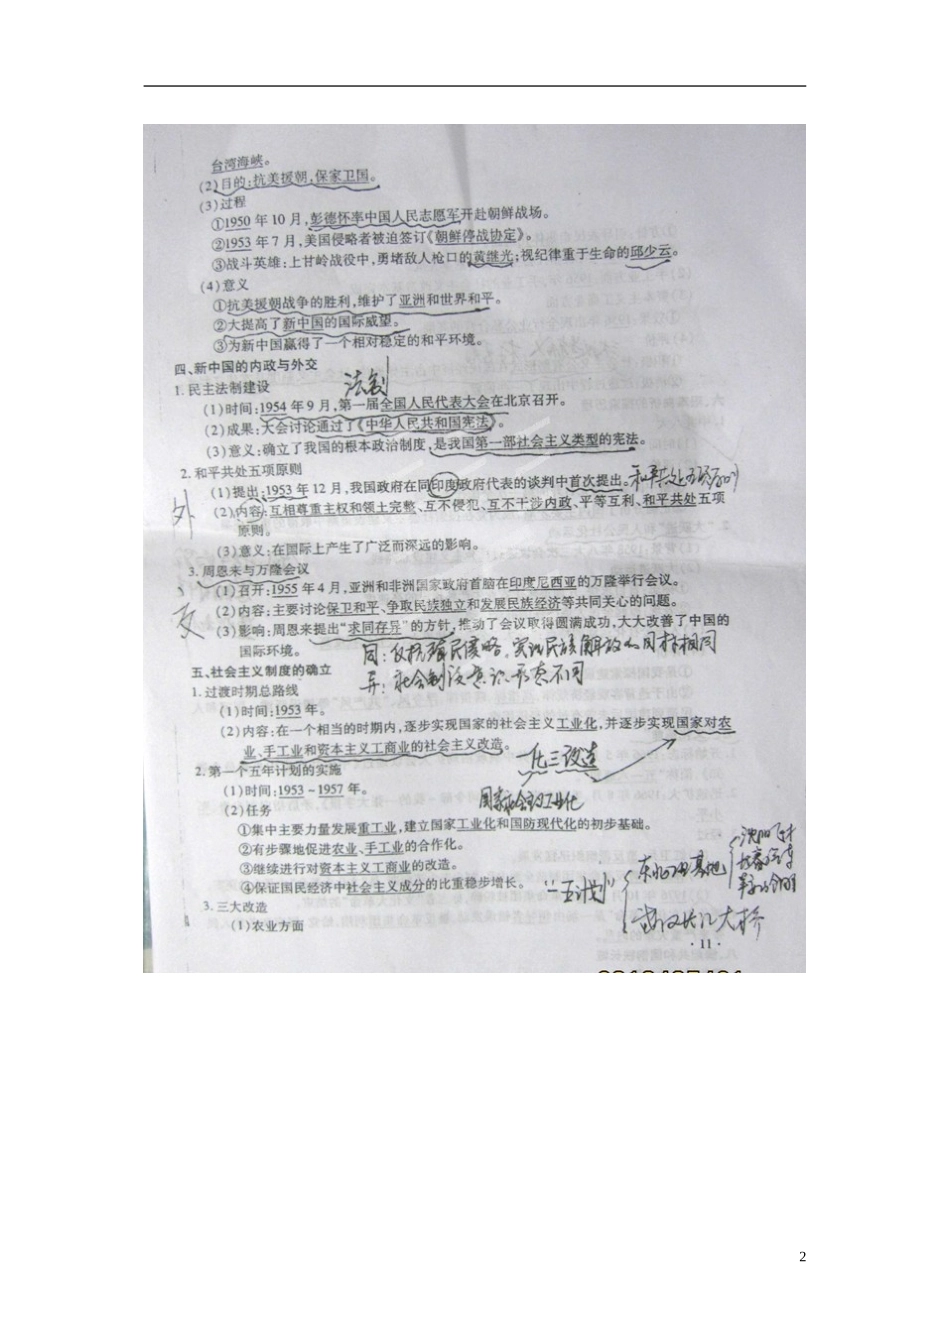 台湾海峡。
(2)目的:抗美援朝,保家卫国。
(3)过程
①1950年10月,彭德怀率中国人民志愿军开赴朝鲜战场。
②1953年7月,美国侵略者被迫签订《朝鲜停战协定》。
③战斗英雄:上甘岭战役中,勇堵敌人枪口的黄继光;视纪律重于生命的邱少云。
(4)意义
①抗美援朝战争的胜利,维护了亚洲和世界和平。
②大提高了新中国的国际威望。
③为新中国赢得了一个相对稳定的和平环境。
四、新中国的内政与外交
1.民主法制建设
法制
(1)时间:1954年9月,第一届全国人民代表大会在北京召开。
(2)成果:大会讨论通过了《中华人民共和国宪法》。
(3)意义:确立了我国的根本政治制度,是我国第一部社会主义类型的宪法。
2.和平共处五项原则
(1)提出:1953年12月,我国政府在同印度政府代表的谈判中首次提出。
外
(2)内容:互相尊重主权和领土完整、互不侵犯、互不干涉内政、平等互利、和平共处五项
原则。
(3)意义:在国际上产生了广泛而深远的影响。
3.周恩来与万隆会议
(1)召开:1955年4月,亚洲和非洲国家政府首脑在印度尼西亚的万隆举行会议。
(2)内容:主要讨论保卫和平、争取民族独立和发展民族经济等共同关心的问题。
交
(3)影响:周恩来提出“求同存异”的方针,推动了会议取得圆满成功,大大改善了中国的
国际环境。
同:反抗殖民侵略,实现民族解放的目标相同
异:社会制度意识形态不同
五、社会主义制度的确立
1.过渡时期总路线
(1)时间:1953年。
(2)内容:在一个相当的时期内,逐步实现国家的社会主义工业化,并逐步实现国家对农
业、手工业和资本主义工商业的社会主义改造。
一化三改造
2.第一个五年计划的实施
(1)时间:1953-1957年。
国家社会主义工业化
(2)任务
①集中主要力量发展重工业,建立国家工业化和国防现代化的初步基础。
②有步骤地促进农业、手工业的合作化。
③继续进行对资本主义工商业的改造。
④保证国民经济中社会主义成分的比重稳步增长。
“一五计划”
东北工业基地
武汉长江大桥
3.三大改造
(1)农业方面
·11·
2